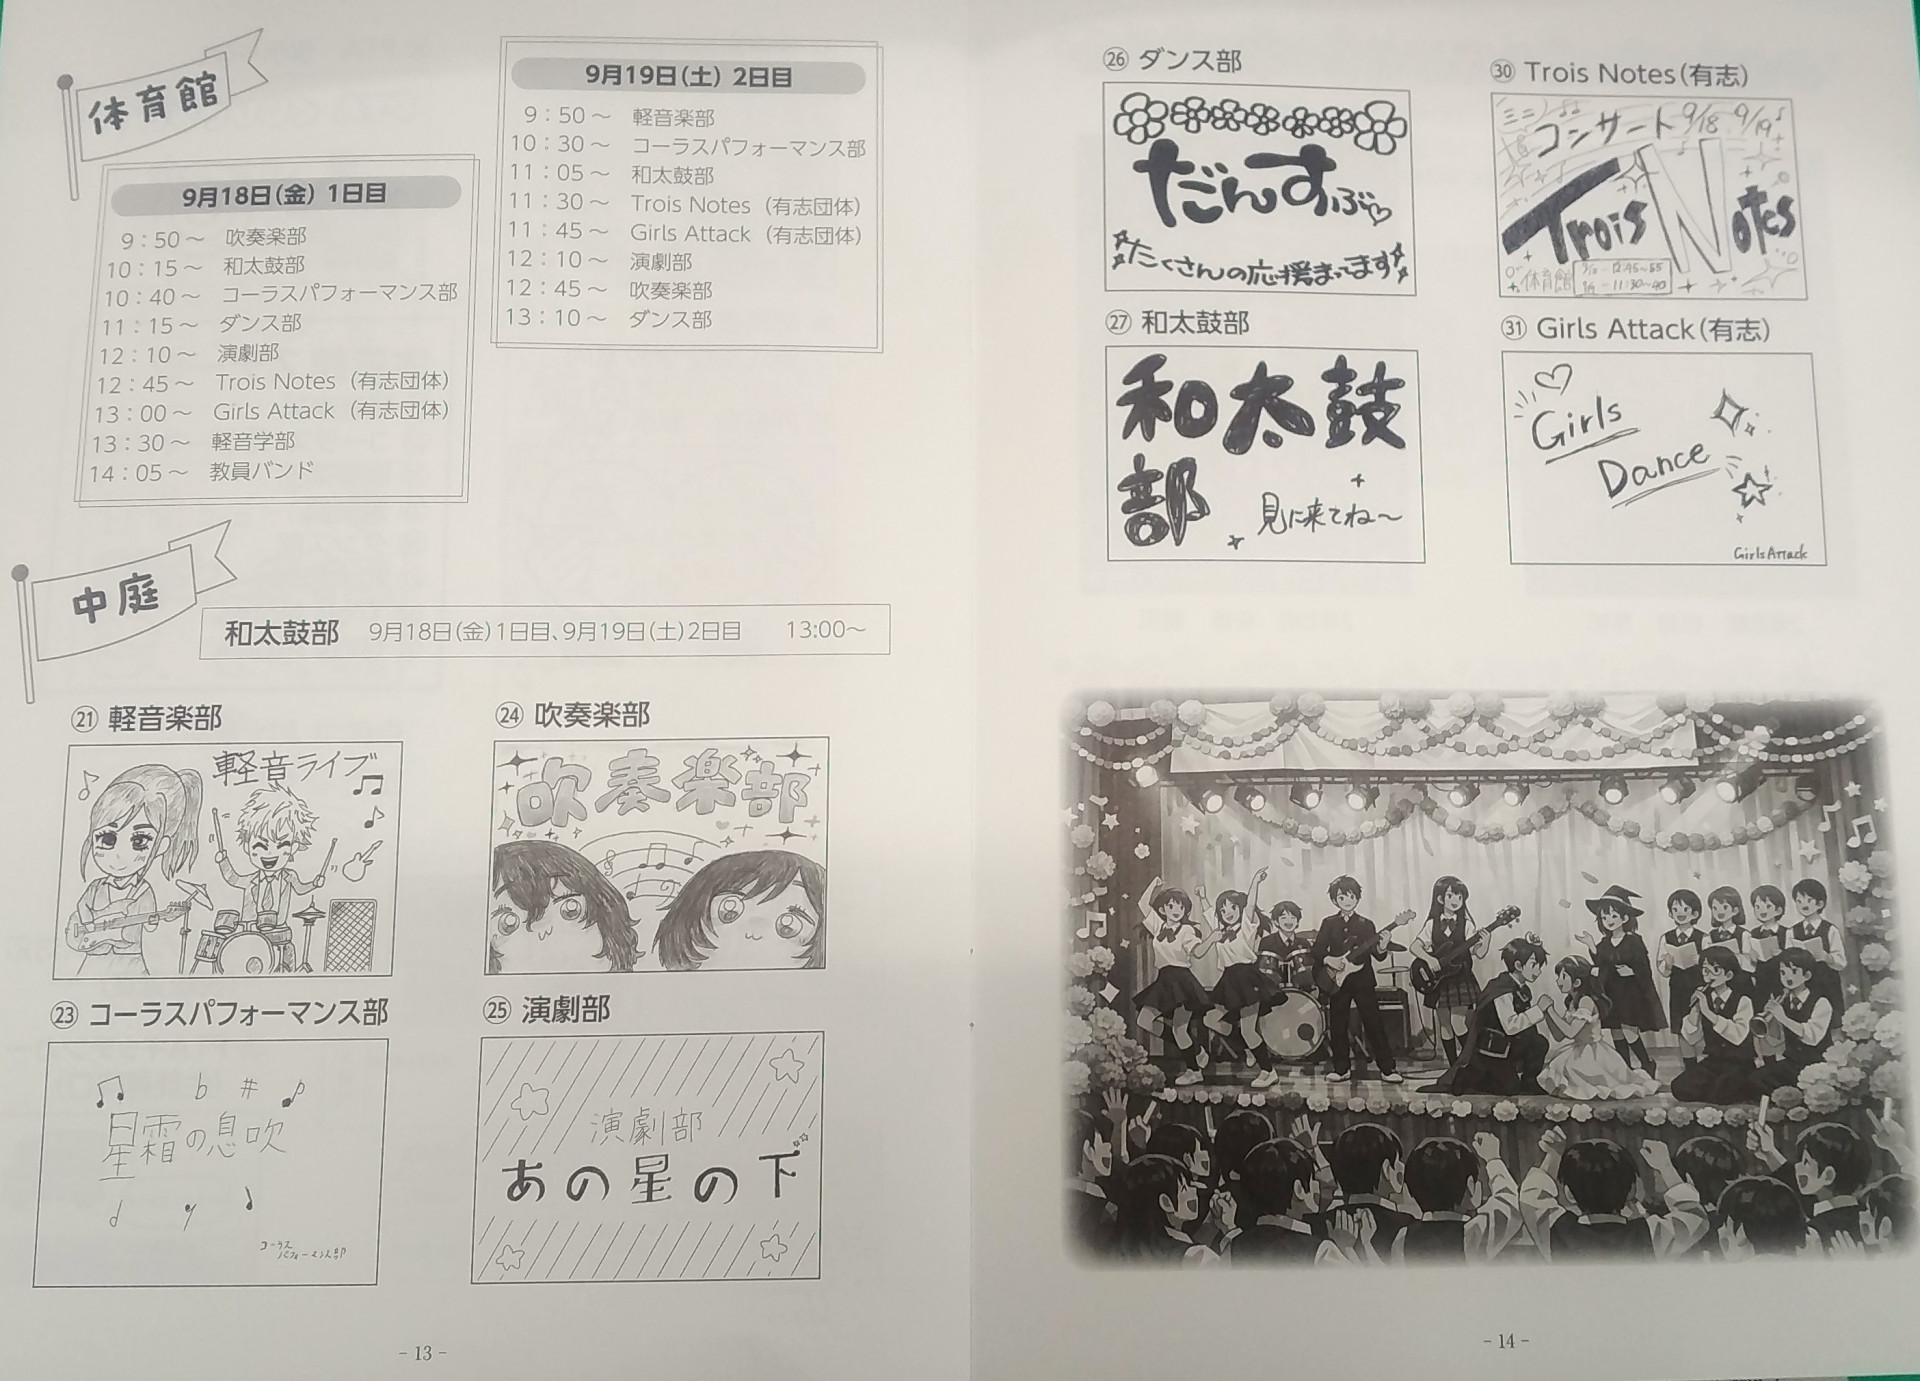 体育館
9月18日(金) 1日目
9:50～ 吹奏楽部
10:15～ 和太鼓部
10:40～ コーラスパフォーマンス部
11:15～ ダンス部
12:10～ 演劇部
12:45～ Trois Notes (有志団体)
13:00～ Girls Attack (有志団体)
13:30～ 軽音学部
14:05～ 教員バンド
9月19日(土) 2日目
9:50～ 軽音楽部
10:30～ コーラスパフォーマンス部
11:05～ 和太鼓部
11:30～ Trois Notes (有志団体)
11:45～ Girls Attack (有志団体)
12:10～ 演劇部
12:45～ 吹奏楽部
13:10～ ダンス部
中庭
和太鼓部 9月18日(金)1日目、9月19日(土)2日目 13:00～
㉑ 軽音楽部
軽音ライブ
㉔ 吹奏楽部
吹奏楽部
㉓ コーラスパフォーマンス部
星霜の息吹
コーラス
パフォーマンス部
㉕ 演劇部
演劇部
あの星の下
- 13 -
㉖ ダンス部
だんすぶ♡
たくさんの応援まってます
㉚ Trois Notes(有志)
ミニ
コンサート 9/18 9/19
Trois Notes
体育館
9/18 - 12:45~55
9/19 - 11:30~40
㉗ 和太鼓部
和太鼓
部
見に来てね～
㉛ Girls Attack(有志)
Girls
Dance
Girls Attack
- 14 -